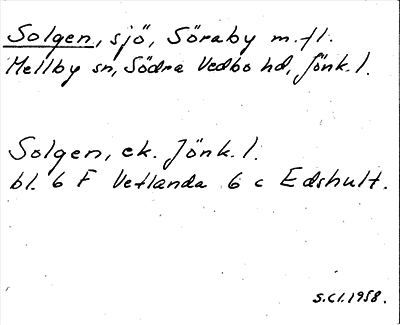 Solgen, sjö, Söraby m.fl.
Mellby sn, Södra Vedbo hd, Jönk. l.
Solgen, ek. Jönk. l.
bl. 6 F Vetlanda 6 c Edshult.
S.Cl. 1958.